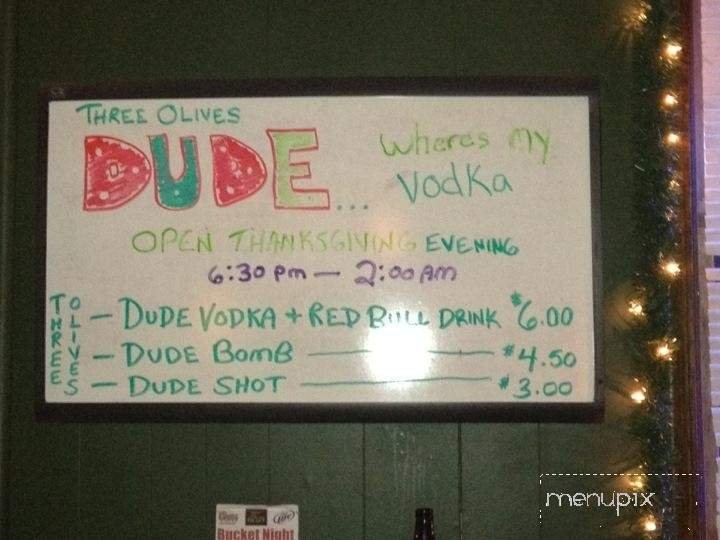 THREE OLIVES
DUDE...
Wheres My
Vodka
OPEN THANKSGIVING EVENING
6:30 PM — 2:00 AM
THREE OLIVES
— DUDE VODKA + RED BULL DRINK $6.00
— DUDE BOMB — $4.50
— DUDE SHOT — $3.00
Bucket Night
menupix